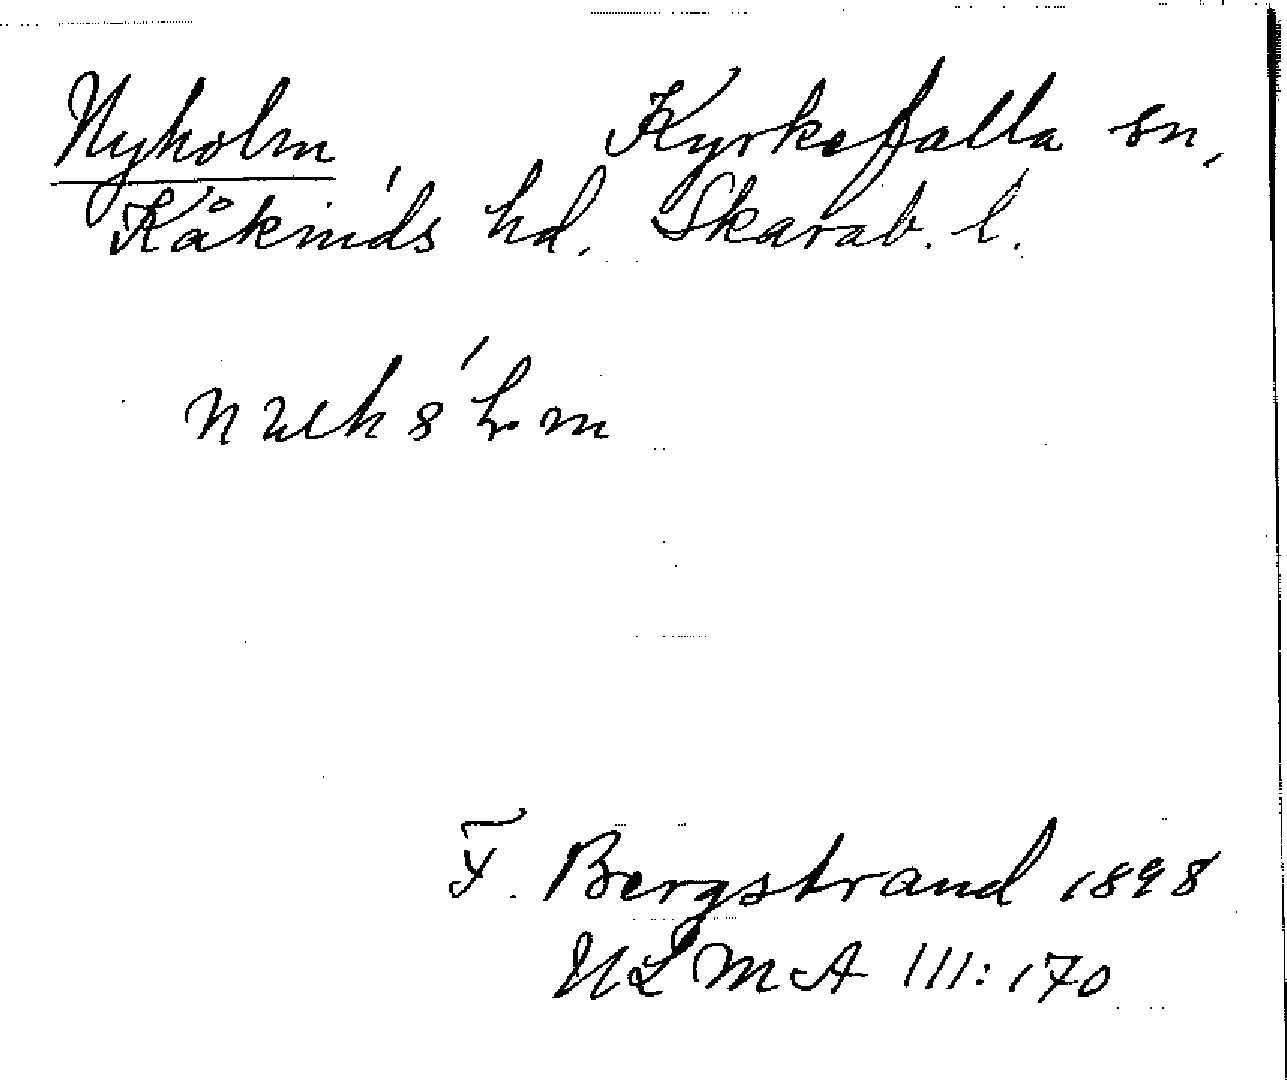 Nyholm, Kyrkefalla sn,
Kåkinds hd. Skarab. l.
F. Bergstrand 1898
ULMA 111:170